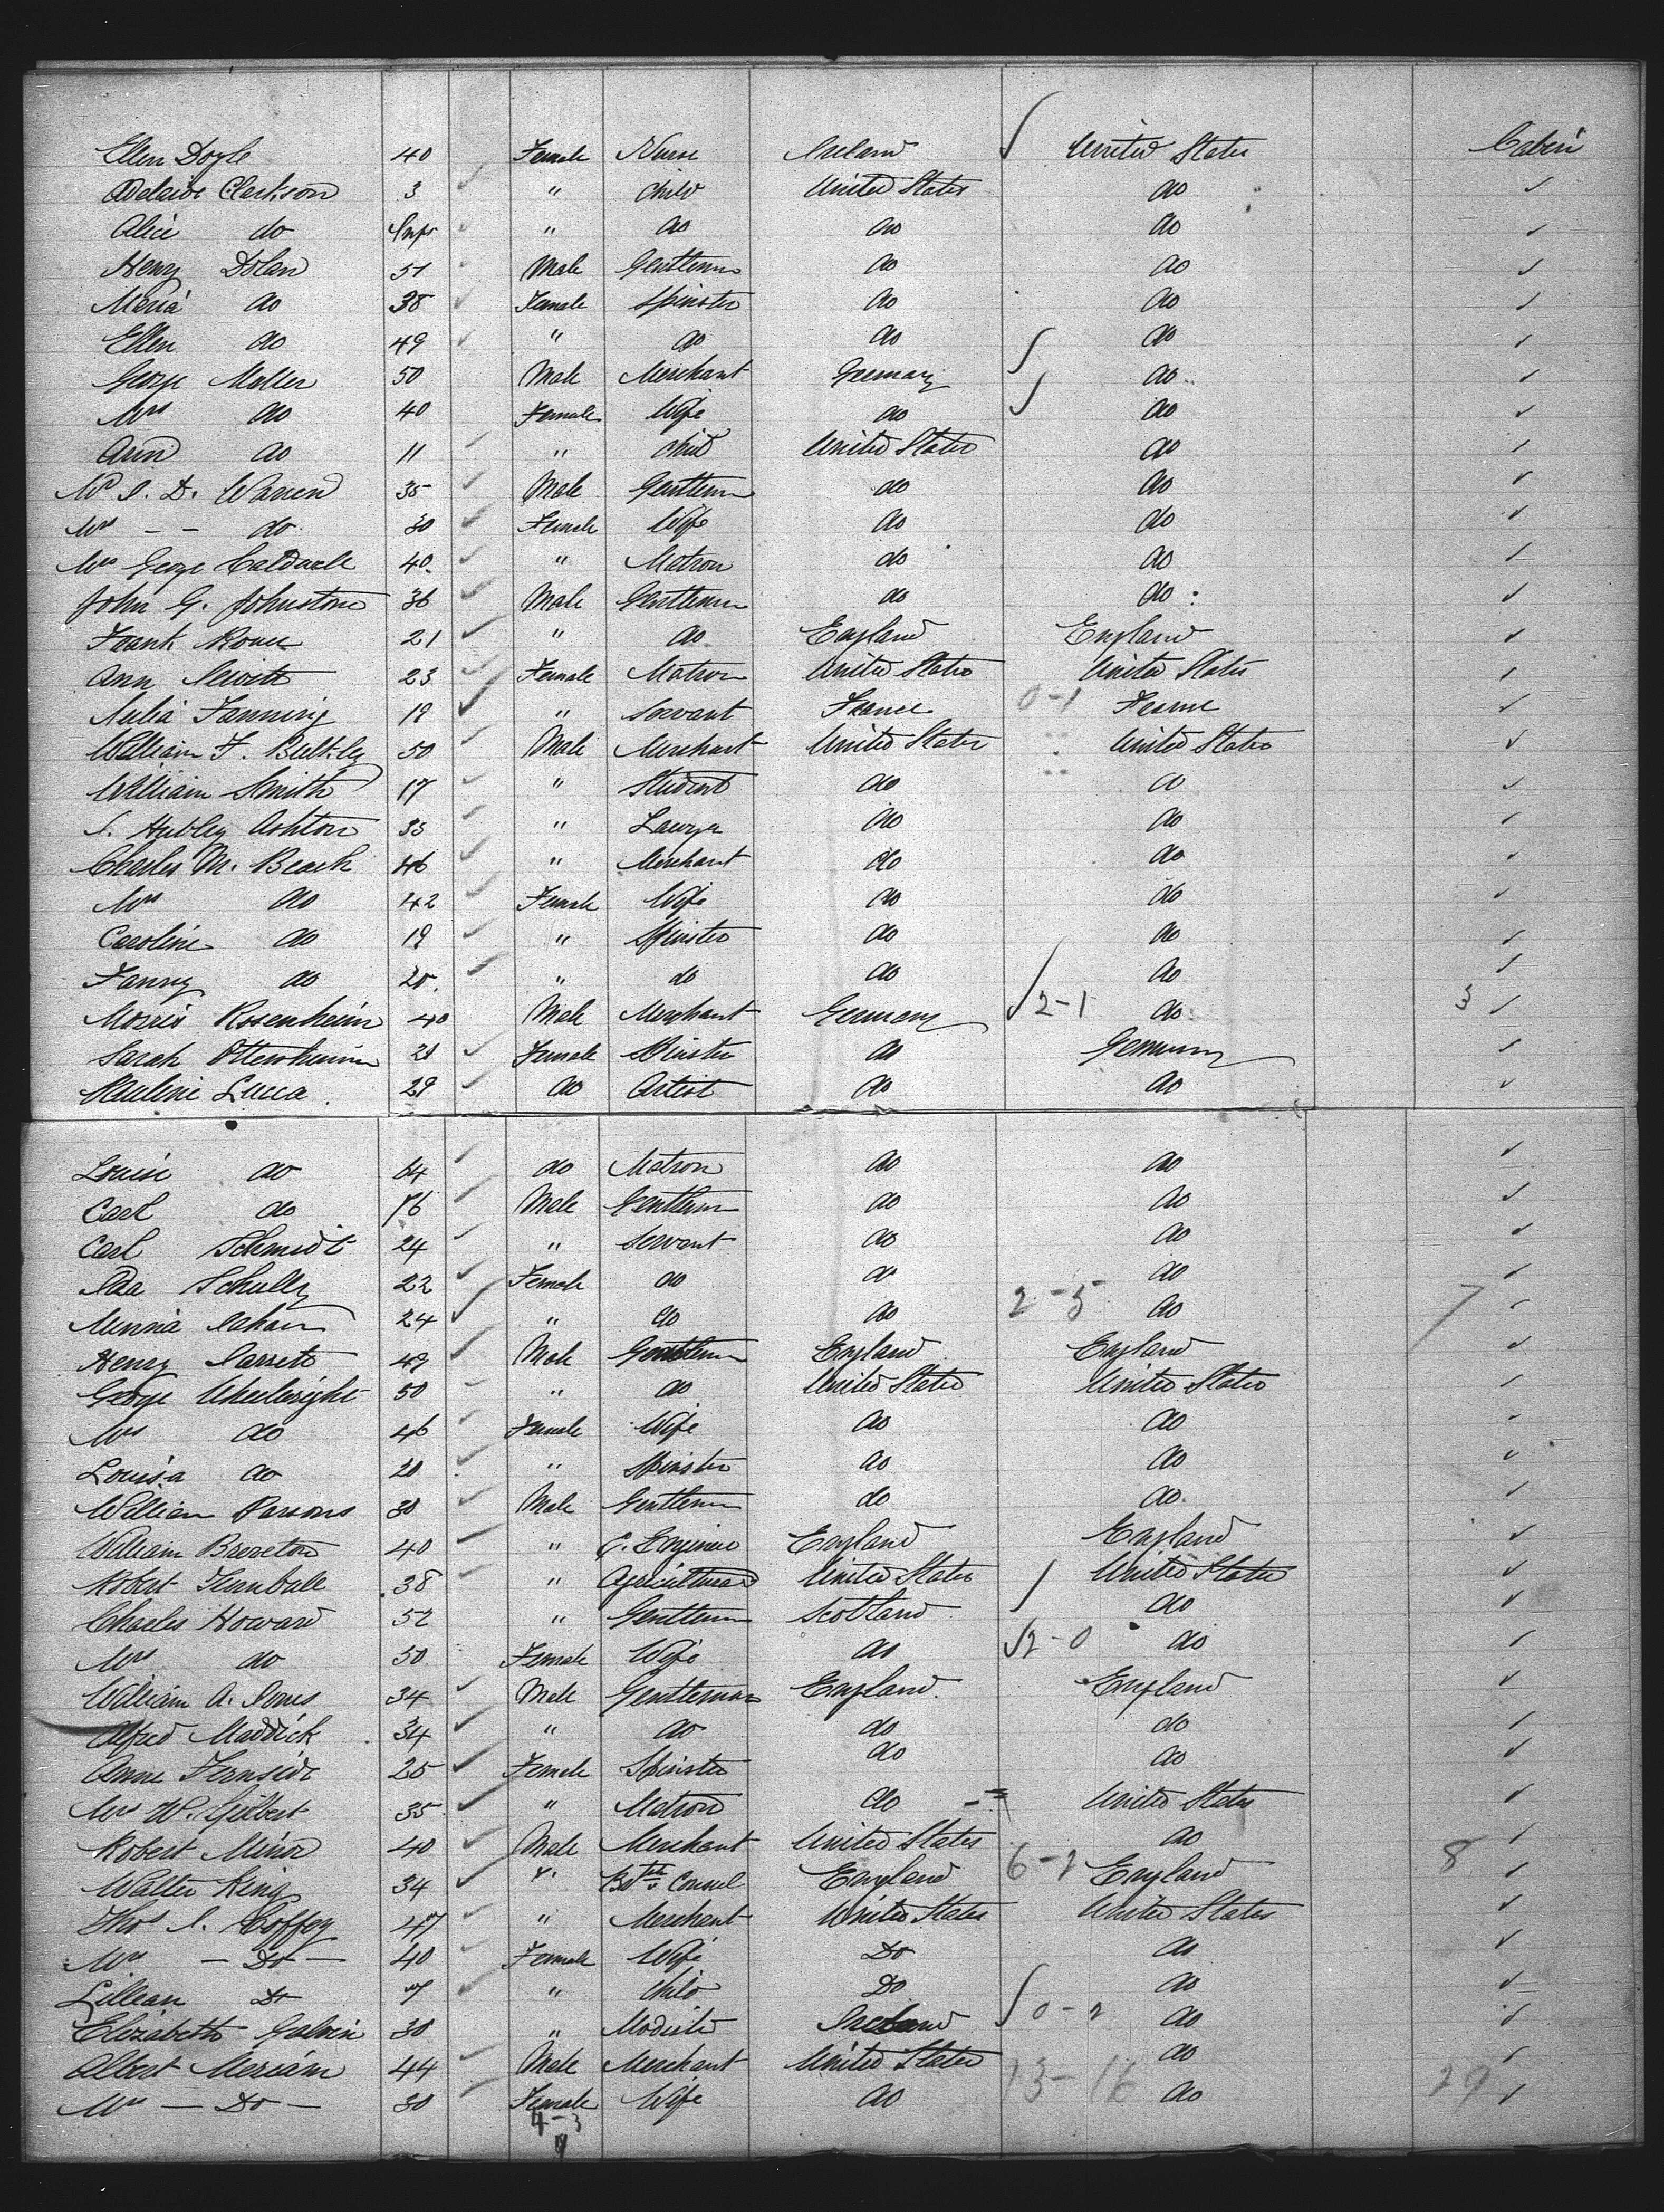 Ellen Doyle 40 Female Nurse Ireland United States Cabin
Adelaide Clarkson 3 " Child United States do
Alice do Inft " do do do
Henry Dolan 51 Male Gentleman do do
Maria do 38 Female Spinster do do
Ellen do 49 " do do do
George Moller 50 Male Merchant Germany do
Mrs do 40 Female Wife do do
do 11 " Child United States do
D. Warren 35 Male Gentleman do do
Mrs - - do 30 Female Wife do do
Mrs George Caldwell 40 " Matron do do
John G. Johnstone 36 Male Gentleman do do
Frank 21 " do England England
Ann 23 Female Matron United States United States
Fanning 19 " Servant France 0-1 France
William F. Bulkley 50 Male Merchant United States United States
William Smith 17 " Student do do
J. Hubley Ashton 33 " Lawyer do do
Charles M. Beach 46 " Merchant do do
Mrs do 42 Female Wife do do
Caroline do 19 " Spinster do do
Fanny do 20 " do do do
Morris Rosenheim 40 Male Merchant Germany 2-1 do 3
Sarah Ottenheimer 21 Female Spinster do Germany
Pauline Lucca 29 do Artist do do
Louise do 64 do Matron do do
Carl do 76 Male Gentleman do do
Carl Schmidt 24 " Servant do do
Ida 22 Female do do do
Minna 24 " do do 2-5 do 7
Henry 49 Male Gentleman England England
George Wheelwright 50 " do United States United States
Mrs do 46 Female Wife do do
Louisa do 20 " Spinster do do
William Parsons 30 Male Gentleman do do
William Brereton 40 " C. Engineer England England
Robert Turnbull 38 " United States United States
Charles Howard 52 " Gentleman Scotland do
Mrs do 50 Female Wife do 2-0 do
William A. Jones 34 Male Gentleman England England
Alfred Maddick 34 " do do do
Anne Fernside 25 Female Spinster do do
Mrs W. Gilbert 35 " Matron do United States
Robert Minor 40 Male Merchant United States do
Walter King 34 " Consul England 6-2 England 8
Thos J. Coffey 47 " Merchant United States United States
Mrs - Do - 40 Female Wife Do do
Lillean Do 7 " Child Do do
Elizabeth Galvin 30 " Modiste Ireland 0-2 do
Albert Merriam 44 Male Merchant United States do
Mrs - Do - 30 Female Wife do 13-16 do 29
4-3